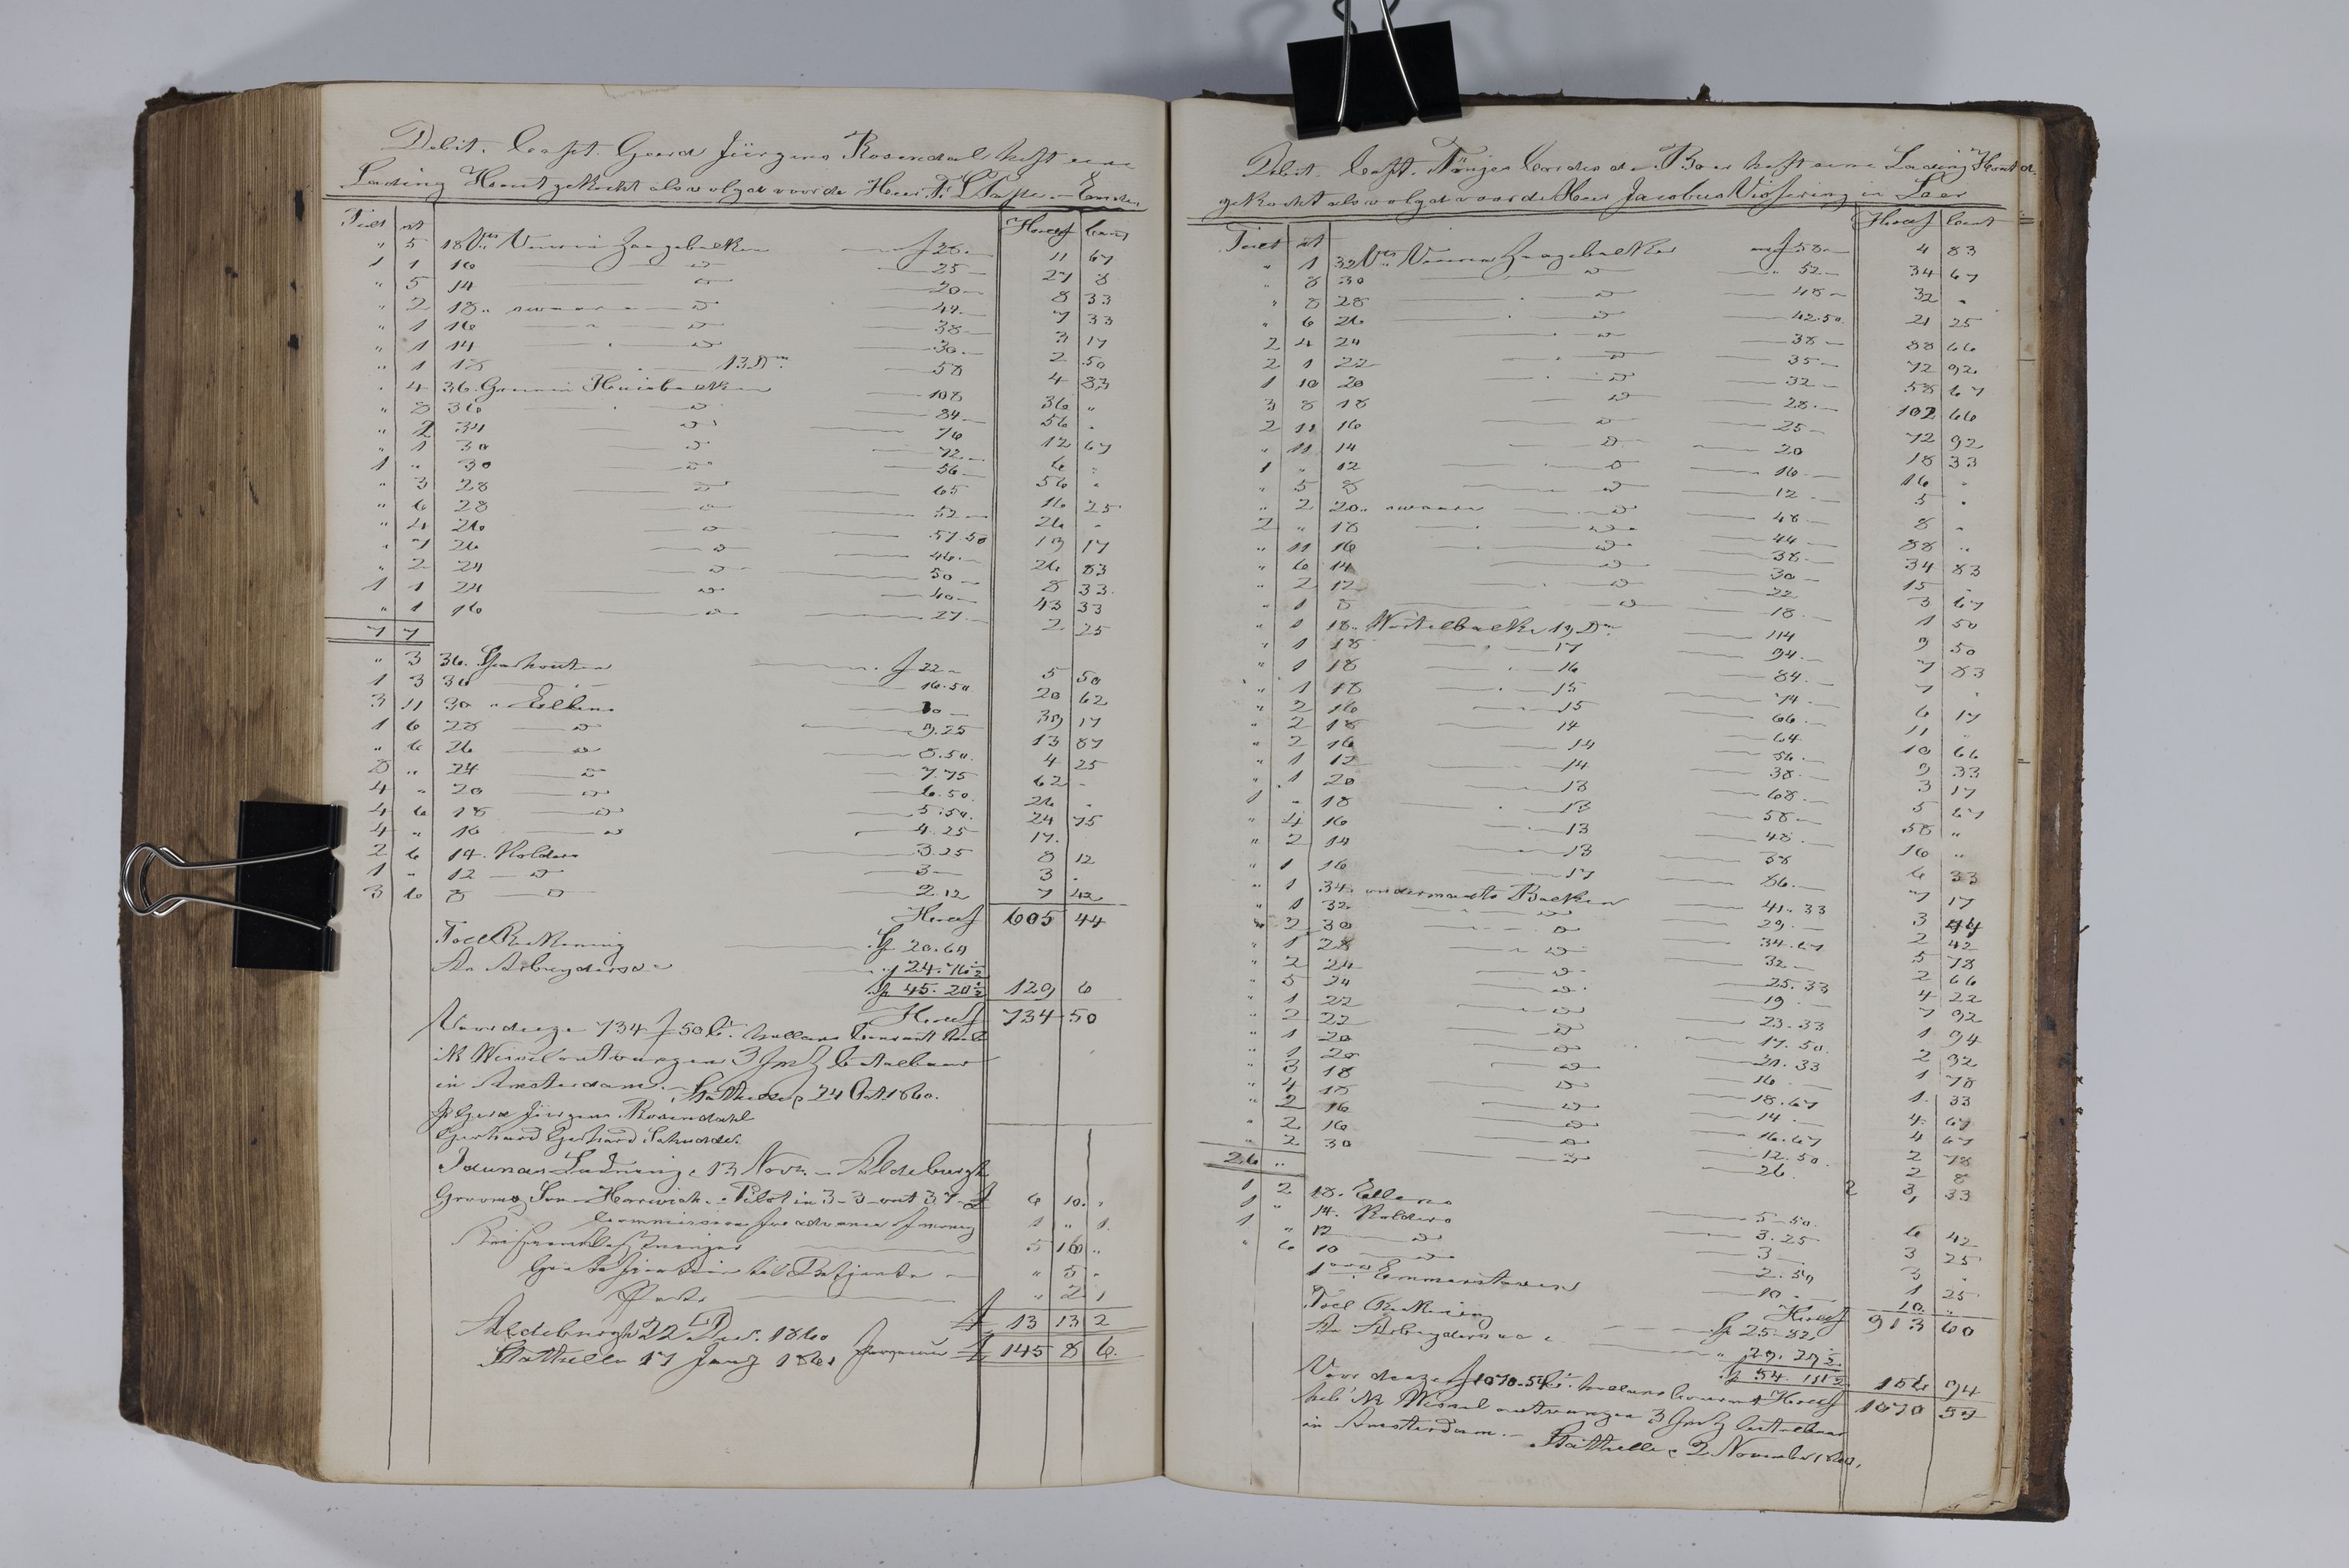 Debit. Capt. Geerd Jürgens Rosendal heft eene
Lading Hout gekocht als volgt voor de Heer
Tielt st Hollf Cent
" 5 18 Vt Vuuren Zaagebalken f 28. 11 67
1 1 16 do 25 27 8
" 5 14 do 20 8 33
" 2 18 " swaare do 44 7 33
" 1 16 " do 38 3 17
" 1 14 do 30 2 50
" 1 18 13 Dm 58 4 83
" 4 36 Greenen Huisbalken 108 36 "
" 8 36 do 84 56 "
" 2 34 do 76 12 67
" 1 30 do 72 6 "
1 " 30 do 56 56 "
" 3 28 do 65 16 25
" 6 28 do 52 26 "
" 4 26 do 57.50 19 17
" 7 26 do 46 26 83
" 2 24 do 50 8 33
1 1 24 do 40 43 33
" 1 16 do 27 2 25
7 7
" 3 36 f 22 5 50
1 3 36 16.50 20 62
3 11 30 " Ellens 10 39 17
1 6 28 do 9.25 13 87
" 6 26 do 8.50 4 25
8 " 24 do 7.75 62 "
4 " 20 do 6.50 26 "
4 6 18 do 5.50 24 75
4 " 16 do 4.25 17
2 6 14 Kolders 3.25 8 12
1 " 12 do 3 3 "
3 6 8 do 2.12 7 42
Hollf 605 44
Toll Rekening Sp 20.60
An Arbeyders 24.76½
Sp 45.20½ 129 6
Hollf 734 50
Voor deeze 734 f 50 Ct. hollans Courant heb
ik Wissel ontvangen 3 betaalbaar
in Amsterdam. Stathelle, 24 Oct 1860.
Geerd Jürgens Rosendahl
Gerhard Gerhard Schroder
Idunas Ladning 13 Novr. Aldeburgh
Grooms Son Harwich Pilot in 3-3 out 3.7 £ 6 10 "
Commission for advance of money 1 " 1
5 16 "
" 5 "
Porto " 2 1
£ 13 13 2
Aldeburgh 22 Decr. 1860
Stathelle 17 Janj 1861 £ 145 8 6
Debit. Capt. Tönjes Cordes de Boer heft eene Lading Hout
gekocht als volgt voor de Heer Jacobus Vissering in Leer
Tielt st Hollf Cent
" 1 32 Vt Vuuren Zaagebalken f 58 4 83
" 8 30 do 52 34 67
" 8 28 do 48 32 "
" 6 26 do 42.50 21 25
2 4 24 do 38 88 66
2 1 22 do 35 72 92
1 10 20 do 32 58 67
3 8 18 do 28 102 66
2 11 16 do 25 72 92
" 11 14 do 20 18 33
1 " 12 do 16 16 "
" 5 8 do 12 5 "
" 2 20 " swaare do 48 8 "
2 " 18 do 44 88 "
" 11 16 do 38 34 83
" 6 14 do 30 15
" 2 12 do 22 3 67
" 1 8 do 18 1 50
" 1 18 19 Dm 114 9 50
" 1 18 " 17 94 7 83
" 1 18 " 16 84 7 "
" 1 18 " 15 74 6 17
" 2 16 " 15 66 11 "
" 2 18 14 64 10 66
" 2 16 14 56 9 33
" 1 12 14 38 3 17
" 1 20 13 68 5 67
1 " 18 13 58 58 "
" 4 16 13 48 16 "
" 2 14 13 38 6 33
" 1 16 17 86 7 17
" 1 34 ondermaats Balken 41.33 3 44
" 1 32 do 29 2 42
" 2 30 do 34.67 5 78
" 1 28 do 32 2 66
" 2 24 do 25.33 4 22
" 5 24 do 19 7 92
" 1 22 do 23.33 1 94
" 2 22 do 17.50 2 92
" 1 20 do 21.33 1 78
" 1 20 do 16 1 33
" 3 18 do 18.67 4 67
" 4 18 do 14 4 67
" 2 16 do 16.67 2 78
" 2 16 do 12.50 2 8
" 2 30 do 26 3 33
26 "
1 2 18 Ellens 5.50 6 42
1 " 14 Kolders 3.25 3 25
1 " 12 do 3 3 "
" 6 10 do 2.50 1 25
10 10 "
Hollf 913 60
Toll Rekening Sp 25.82
An Arbeyders " 29.29½
Sp 54 11½ 156 94
Voor deeze f 1070.54 Ct. hollans Courant Hollf 1070 54
heb ik Wissel ontvangen 3 betaalbaar
in Amsterdam. Stathelle, 2 November 1860.